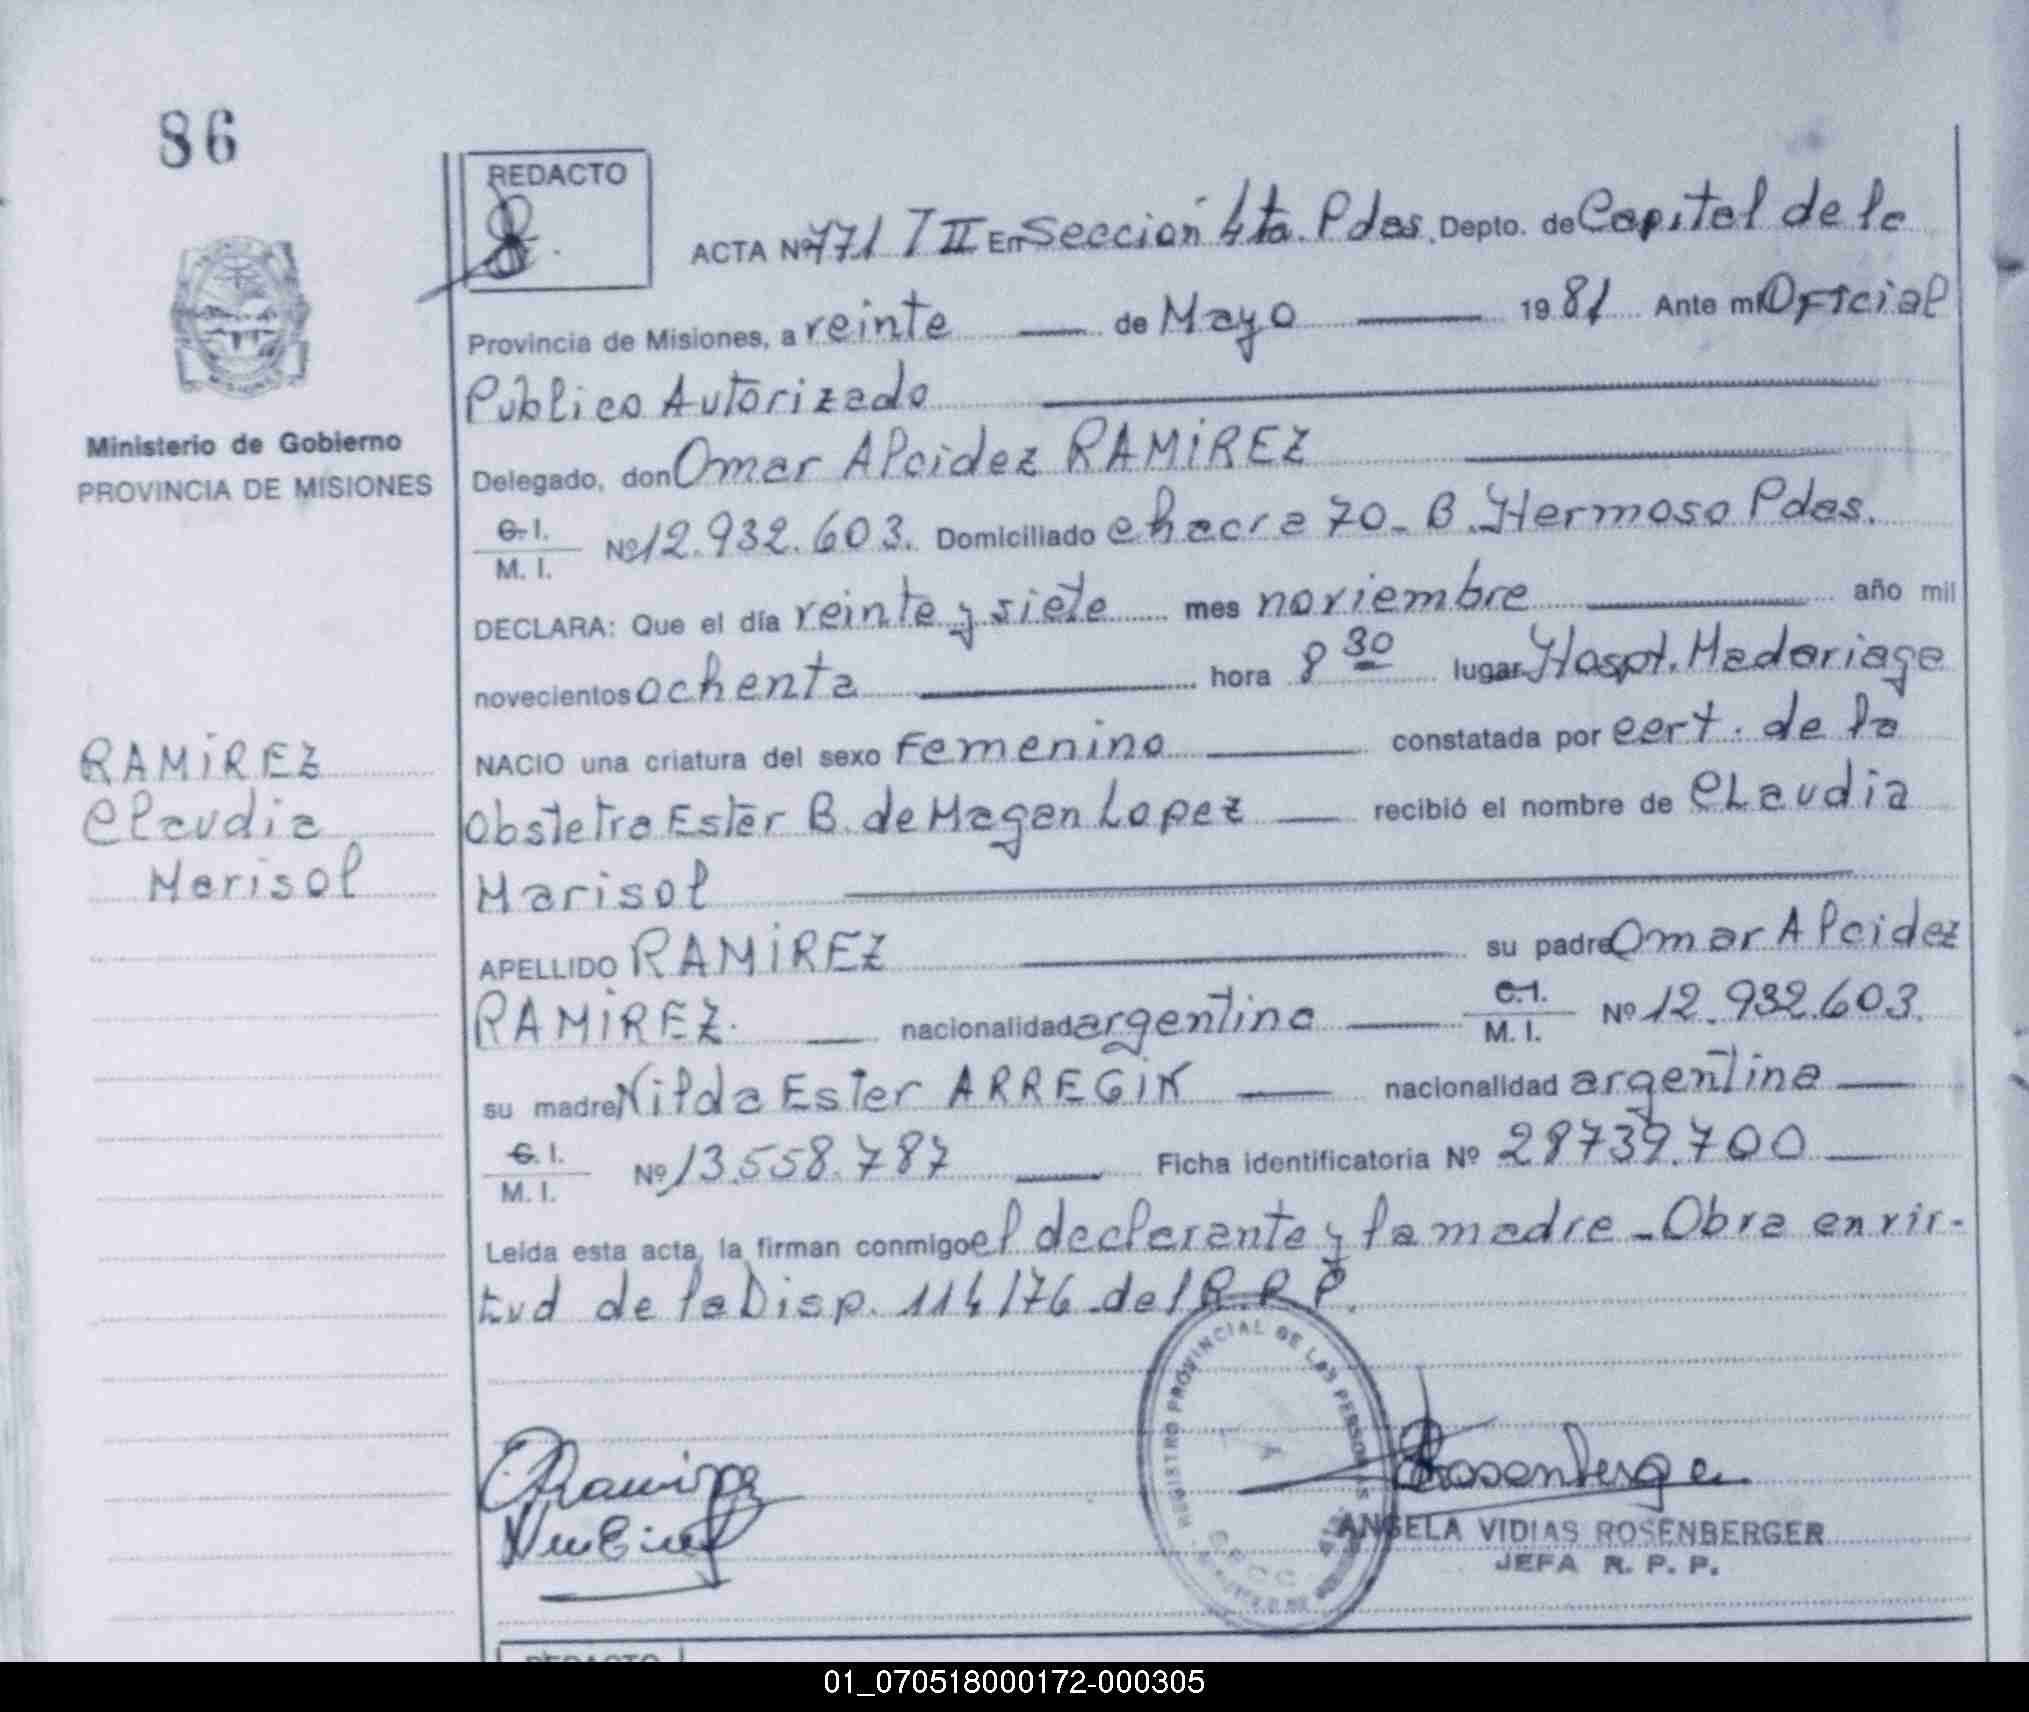 86
REDACTO
ACTA Nº 771 T II En Sección 4ta. Pdas. Depto. de Capital de la
Provincia de Misiones, a veinte — de Mayo — 1981 Ante mí Oficial
Publico Autorizado
Ministerio de Gobierno
PROVINCIA DE MISIONES
Delegado, don Omar Alcidez RAMIREZ
C. I.
M. I. Nº 12.932.603. Domiciliado chacra 70_ B. Hermoso Pdas.
DECLARA: Que el día veinte y siete mes noviembre — año mil
novecientos ochenta — hora 8 30 lugar Hospt. Madariaga
NACIO una criatura del sexo Femenino — constatada por cert. de la
Obstetra Ester B. de Magan Lopez — recibió el nombre de CLaudia
Marisol
RAMIREZ
Claudia
Marisol
APELLIDO RAMIREZ — su padre Omar Alcidez
RAMIREZ. — nacionalidad argentino — C.I.
M. I. Nº 12.932.603.
su madre Nilda Ester ARREGIN — nacionalidad argentina —
C. I.
M. I. Nº 13.558.787 — Ficha identificatoria Nº 28739.700 —
Leida esta acta, la firman conmigo el declarante y la madre _ Obra en vir-
tud de la Disp. 114/76 del R.P.P.
REGISTRO PROVINCIAL DE LAS PERSONAS
ANGELA VIDIAS ROSENBERGER
JEFA R. P. P.
REDACTO
01_070518000172-000305